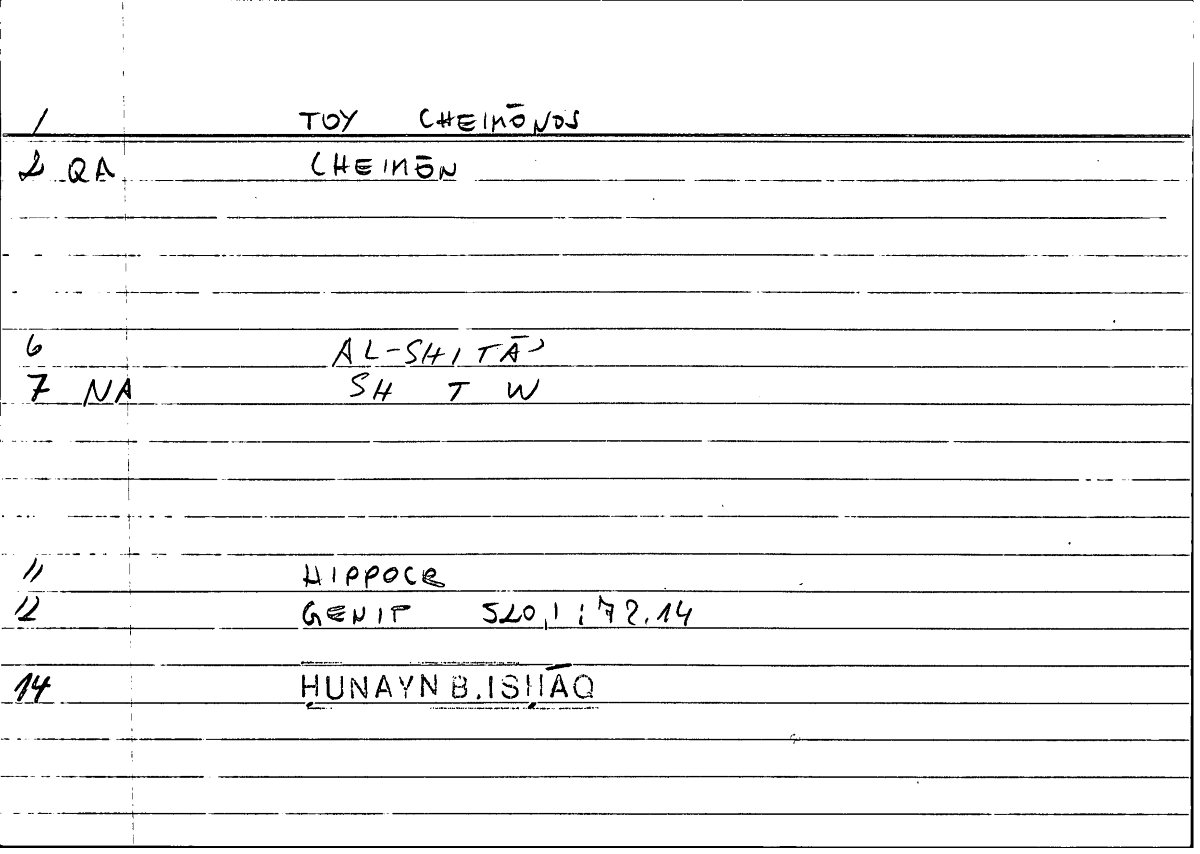 1 TOY CHEIMŌNOS
2 QA CHEIMŌN
6 AL-SHITĀʾ
7 NA SH T W
11 HIPPOCR
12 GENIT 520,1 : 72.14
14 ḤUNAYN B. ISḤĀQ